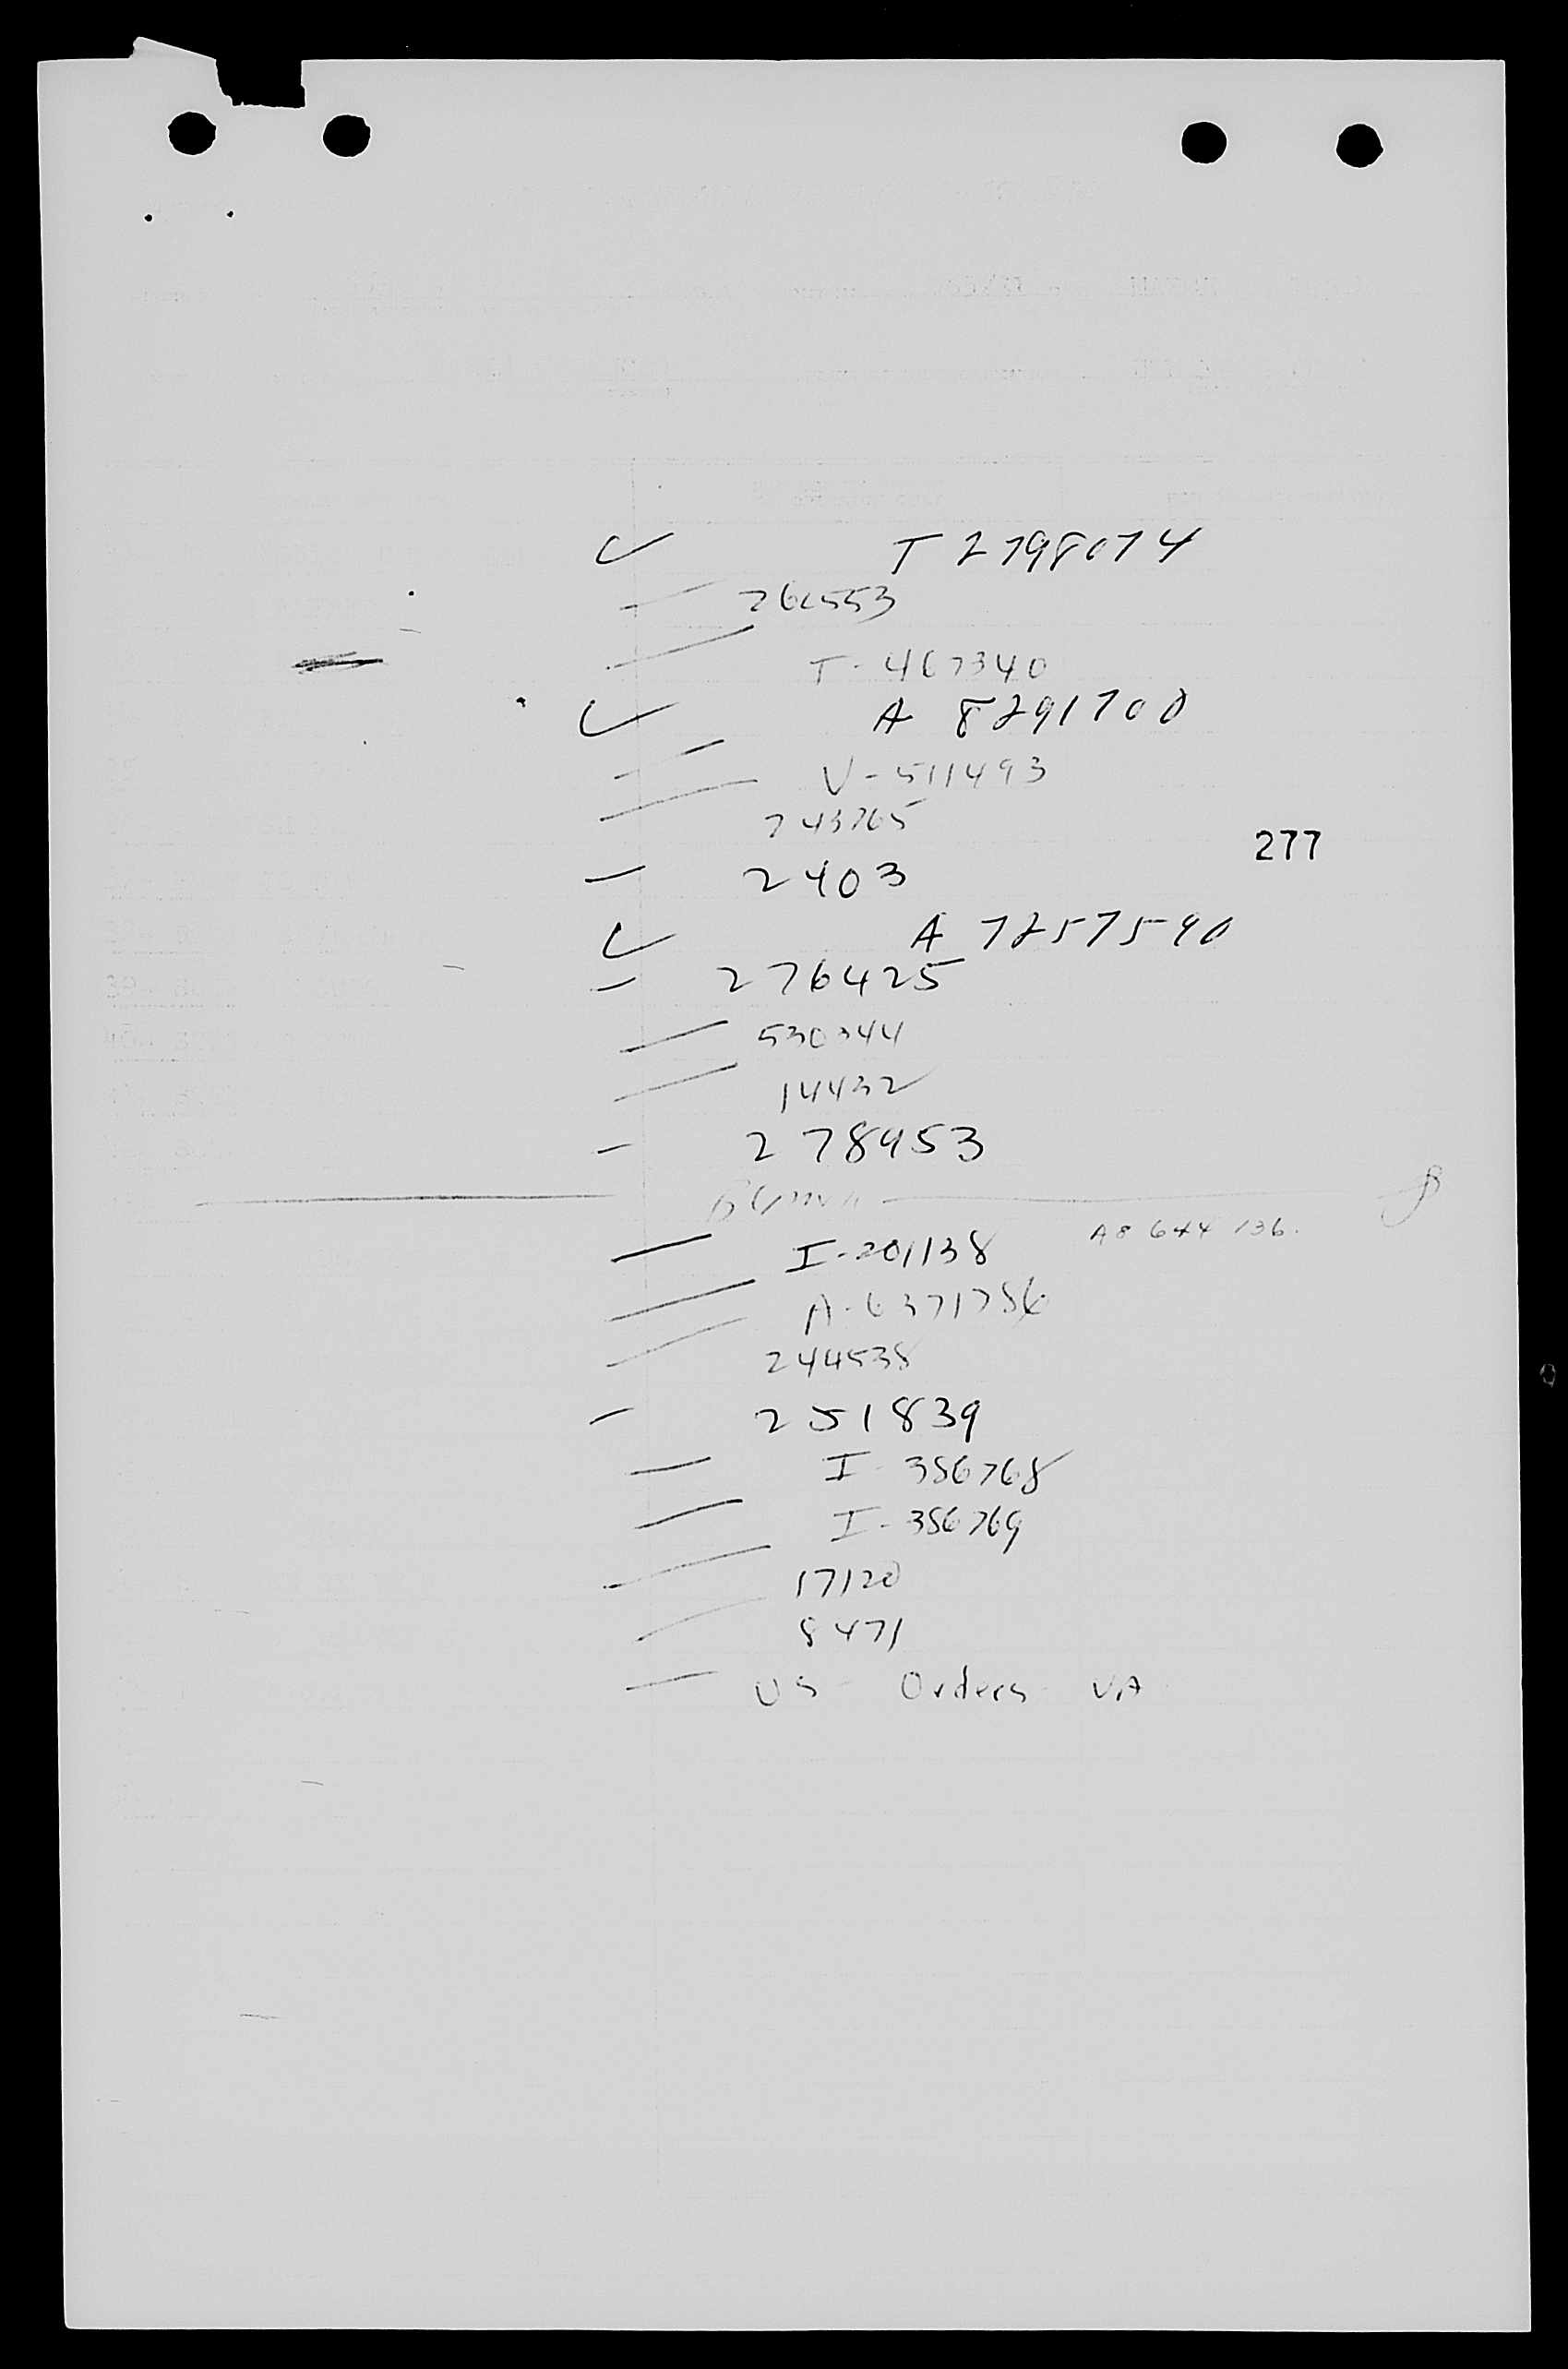 T 2798074
T-467340
A 8291700
V-511493
243765
2403
277
A 7257590
276425
530344
14432
278953
A8 644 136.
I-201138
A-6371786
244538
251839
I-386768
I-386769
17120
8471
US - Orders VA